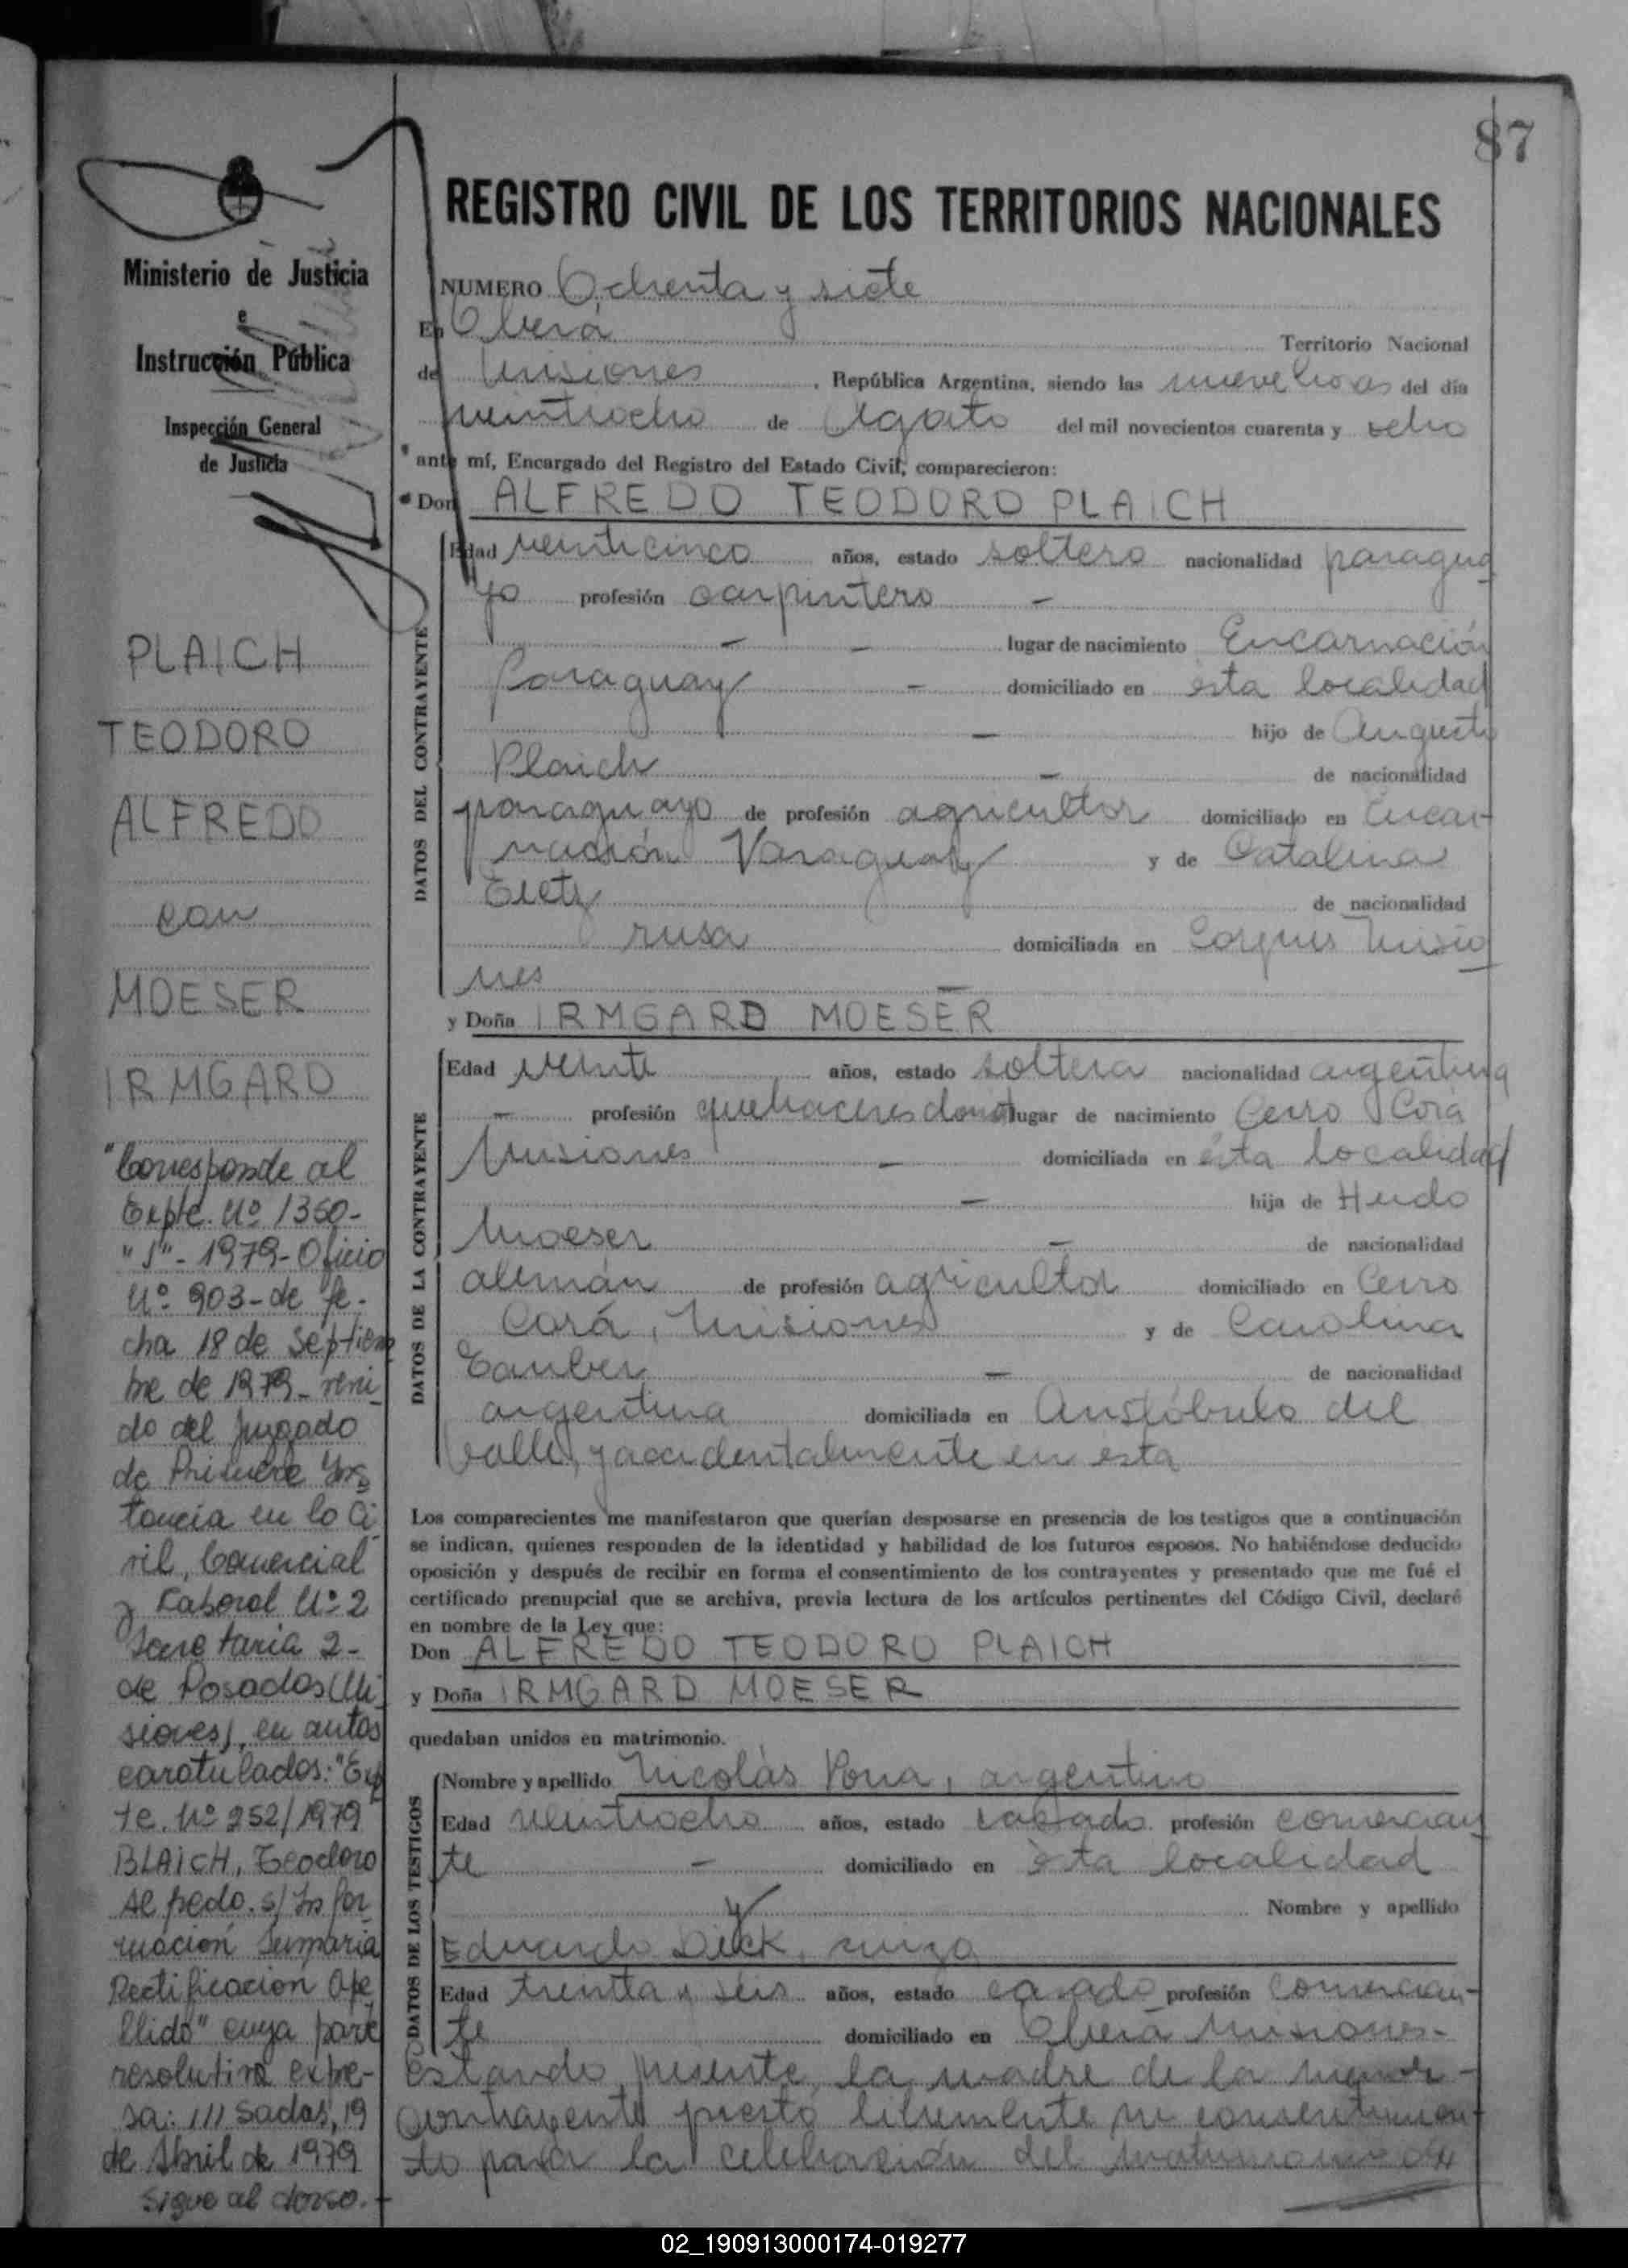 87
REGISTRO CIVIL DE LOS TERRITORIOS NACIONALES
Ministerio de Justicia
e
Instrucción Pública
Inspección General
de Justicia
PLAICH
TEODORO
ALFREDO
con
MOESER
IRMGARD
"Corresponde al
Expte. Nº 1350-
"J"- 1979- Oficio
Nº 903- de fe-
cha 18 de Septiem
bre de 1979- veni
do del Juzgado
de Primera Ins
tancia en lo Ci
vil, Comercial
y Laboral Nº 2
Secretaria 2-
de Posadas (Mi
siones), en autos
caratulados: "Exp
te. Nº 252/1979
BLAICH, Teodoro
Al fredo. s/ Infor
mación Sumaria
Rectificación Ape
llido" cuya parte
resolutiva expre-
sa: ///sadas, 19
de Abril de 1979
sigue al dorso.-
NUMERO Ochenta y siete
En Oberá Territorio Nacional
de Misiones, República Argentina, siendo las nueve horas del día
veintiocho de Agosto del mil novecientos cuarenta y ocho
ante mí, Encargado del Registro del Estado Civil, comparecieron:
Don ALFREDO TEODORO PLAICH
DATOS DEL CONTRAYENTE
Edad veinticinco años, estado soltero nacionalidad paragua
yo profesión carpintero -
- - lugar de nacimiento Encarnación
Paraguay - domiciliado en ésta localidad
- hijo de Augusto
Plaich - de nacionalidad
paraguayo de profesión agricultor domiciliado en Encar-
nación Paraguay y de Catalina
de nacionalidad
rusa domiciliada en Corpus Misio
nes -
y Doña IRMGARD MOESER
DATOS DE LA CONTRAYENTE
Edad veinte años, estado soltera nacionalidad argentina
- profesión quehaceres domest lugar de nacimiento Cerro Corá
Misiones - domiciliada en ésta localidad
- hija de Hudo
Moeser - de nacionalidad
alemán de profesión agricultor domiciliado en Cerro
Corá, Misiones y de Carolina
Tauber - de nacionalidad
argentina domiciliada en Aristóbulo del
Valle, y accidentalmente en esta
Los comparecientes me manifestaron que querían desposarse en presencia de los testigos que a continuación
se indican, quienes responden de la identidad y habilidad de los futuros esposos. No habiéndose deducido
oposición y después de recibir en forma el consentimiento de los contrayentes y presentado que me fué el
certificado prenupcial que se archiva, previa lectura de los artículos pertinentes del Código Civil, declaré
en nombre de la Ley que:
Don ALFREDO TEODORO PLAICH
y Doña IRMGARD MOESER
quedaban unidos en matrimonio.
DATOS DE LOS TESTIGOS
Nombre y apellido Nicolás argentino
Edad veintiocho años, estado casado profesión comercian
te - domiciliado en ésta localidad
y Nombre y apellido
Eduardo Dick, suizo
Edad treinta y seis años, estado casado profesión comercian-
te domiciliado en Oberá Misiones-
Estando presente, la madre de la menor
contrayente presto libremente su consentimien-
to para la celebración del matrimonio
02_190913000174-019277